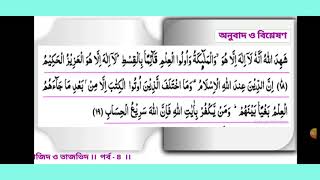 অনুবাদ ও বিশ্লেষণ
شَهِدَ اللهُ اَنَّهٗ لَآ اِلٰهَ اِلَّا هُوَ ۙ وَالْمَلٰٓئِكَةُ وَاُولُوا الْعِلْمِ قَآئِمًاۢ بِالْقِسْطِ ؕ لَآ اِلٰهَ اِلَّا هُوَ الْعَزِيْزُ الْحَكِيْمُ
(١٨) اِنَّ الدِّيْنَ عِنْدَ اللهِ الْاِسْلَامُ ۫ وَمَا اخْتَلَفَ الَّذِيْنَ اُوْتُوا الْكِتٰبَ اِلَّا مِنْۢ بَعْدِ مَا جَآءَهُمُ
الْعِلْمُ بَغْيًاۢ بَيْنَهُمْ ؕ وَمَنْ يَّكْفُرْ بِاٰيٰتِ اللهِ فَاِنَّ اللهَ سَرِيْعُ الْحِسَابِ (١٩)
জিদ ও তাজভিদ ।। পর্ব - ৪ ।।